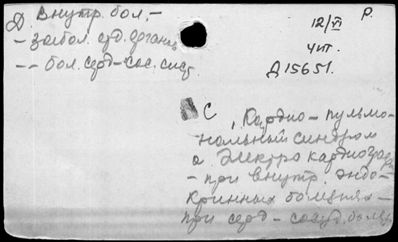 Д. Внутр. бол. –
– забол. отд. органов
– – бол. серд – сос. сист.
12/VI
Р.
чит.
Д15651.
С
, Кардио – пульмо-
нальный синдром
а. Электрокардиогра
– при внутр. эндо-
кринных болезнях –
при серд – сосуд. болез